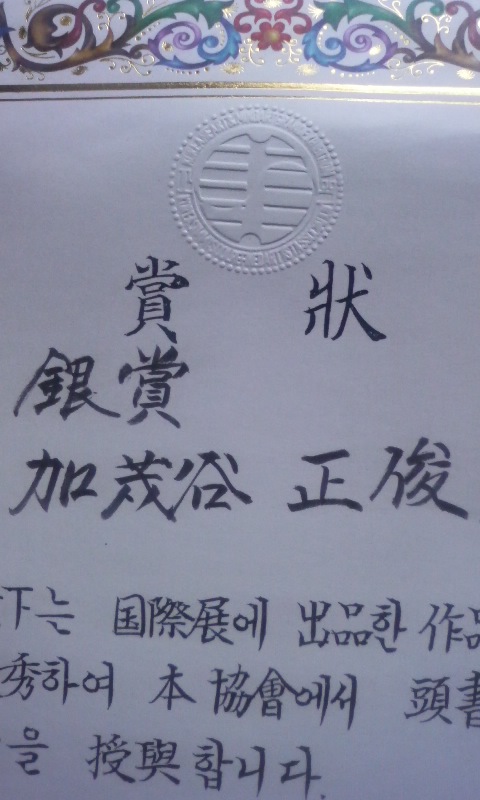 賞 狀
銀賞
加茂谷 正俊
下는 国際展에 出品한 作品
秀하여 本 協會에서 頭書
을 授與합니다.